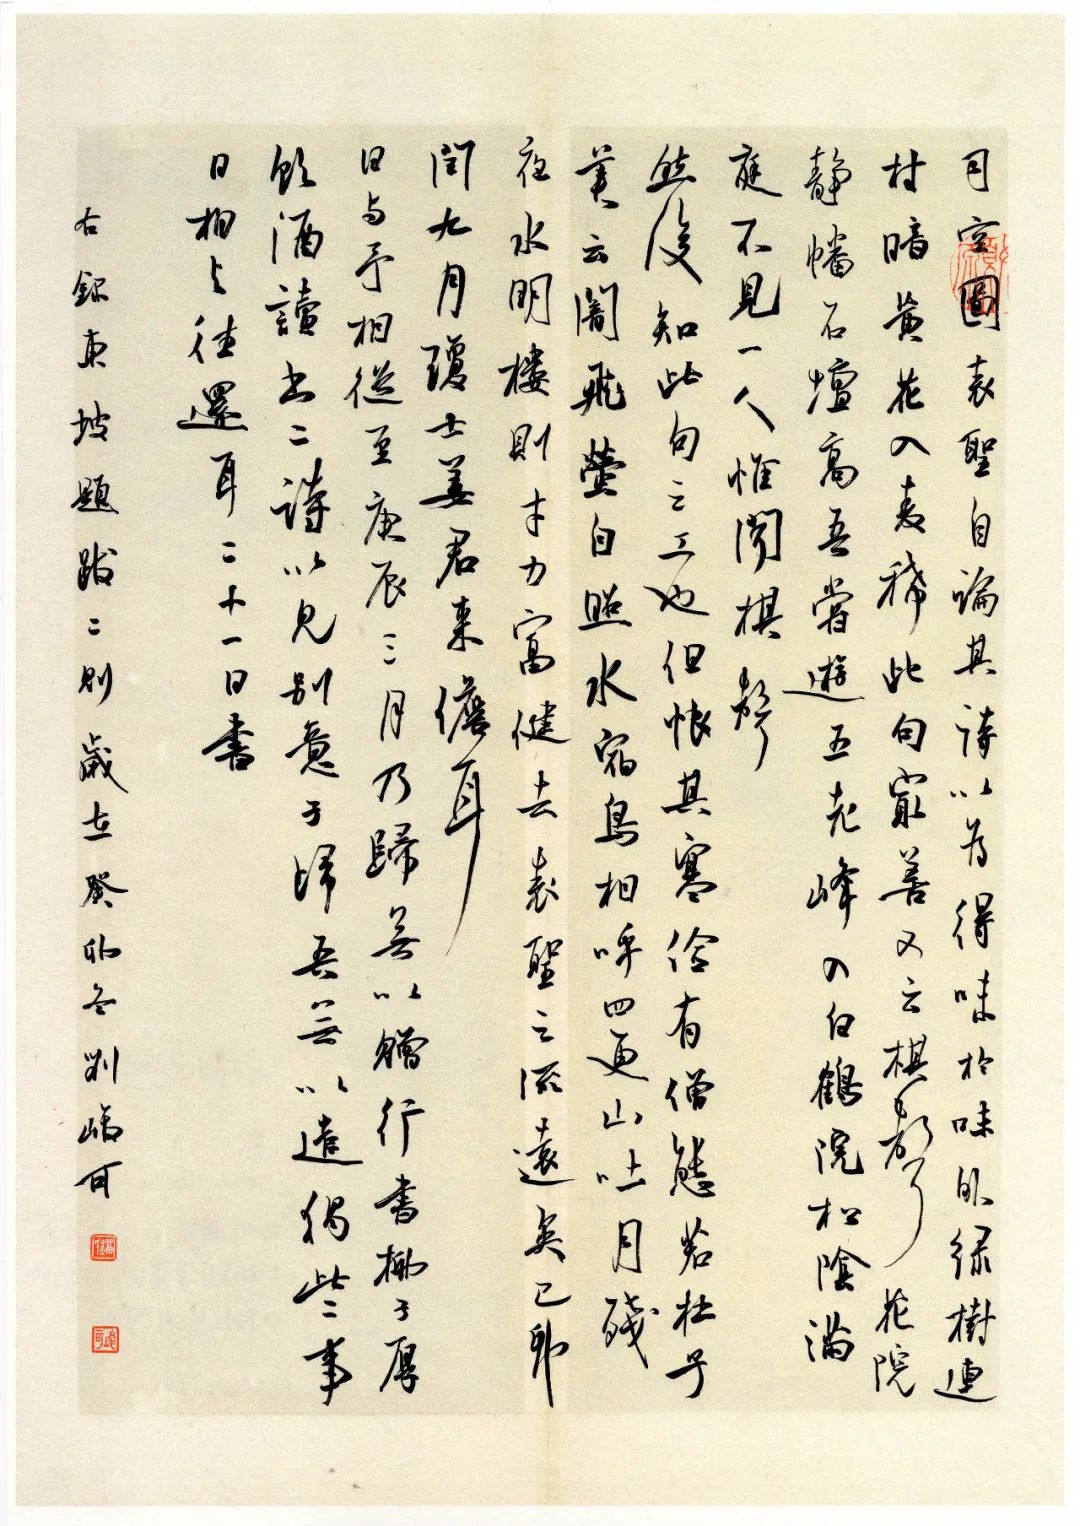 司空圖表聖自論其詩以為得味於味外綠樹連
村暗黃花入麦稀此句最善又云棋聲花院
靜幡石壇高吾嘗遊五老峰入白鶴院松陰滿
庭不見一人惟聞棋聲
然後知此句之工也但恨其寒儉有僧態若杜子
美云闇飛螢自照水宿鳥相呼四更山吐月殘
夜水明樓則才力富健去表聖之流遠矣己卯
閏九月瓊士姜君來儋耳
日与予相從至庚辰三月乃歸無以贈行書柳子厚
飲酒讀書二詩以見別意子歸吾無以遣獨此二事
日相与往還耳二十一日書
右錄東坡題跋二則歲在癸卯冬劉